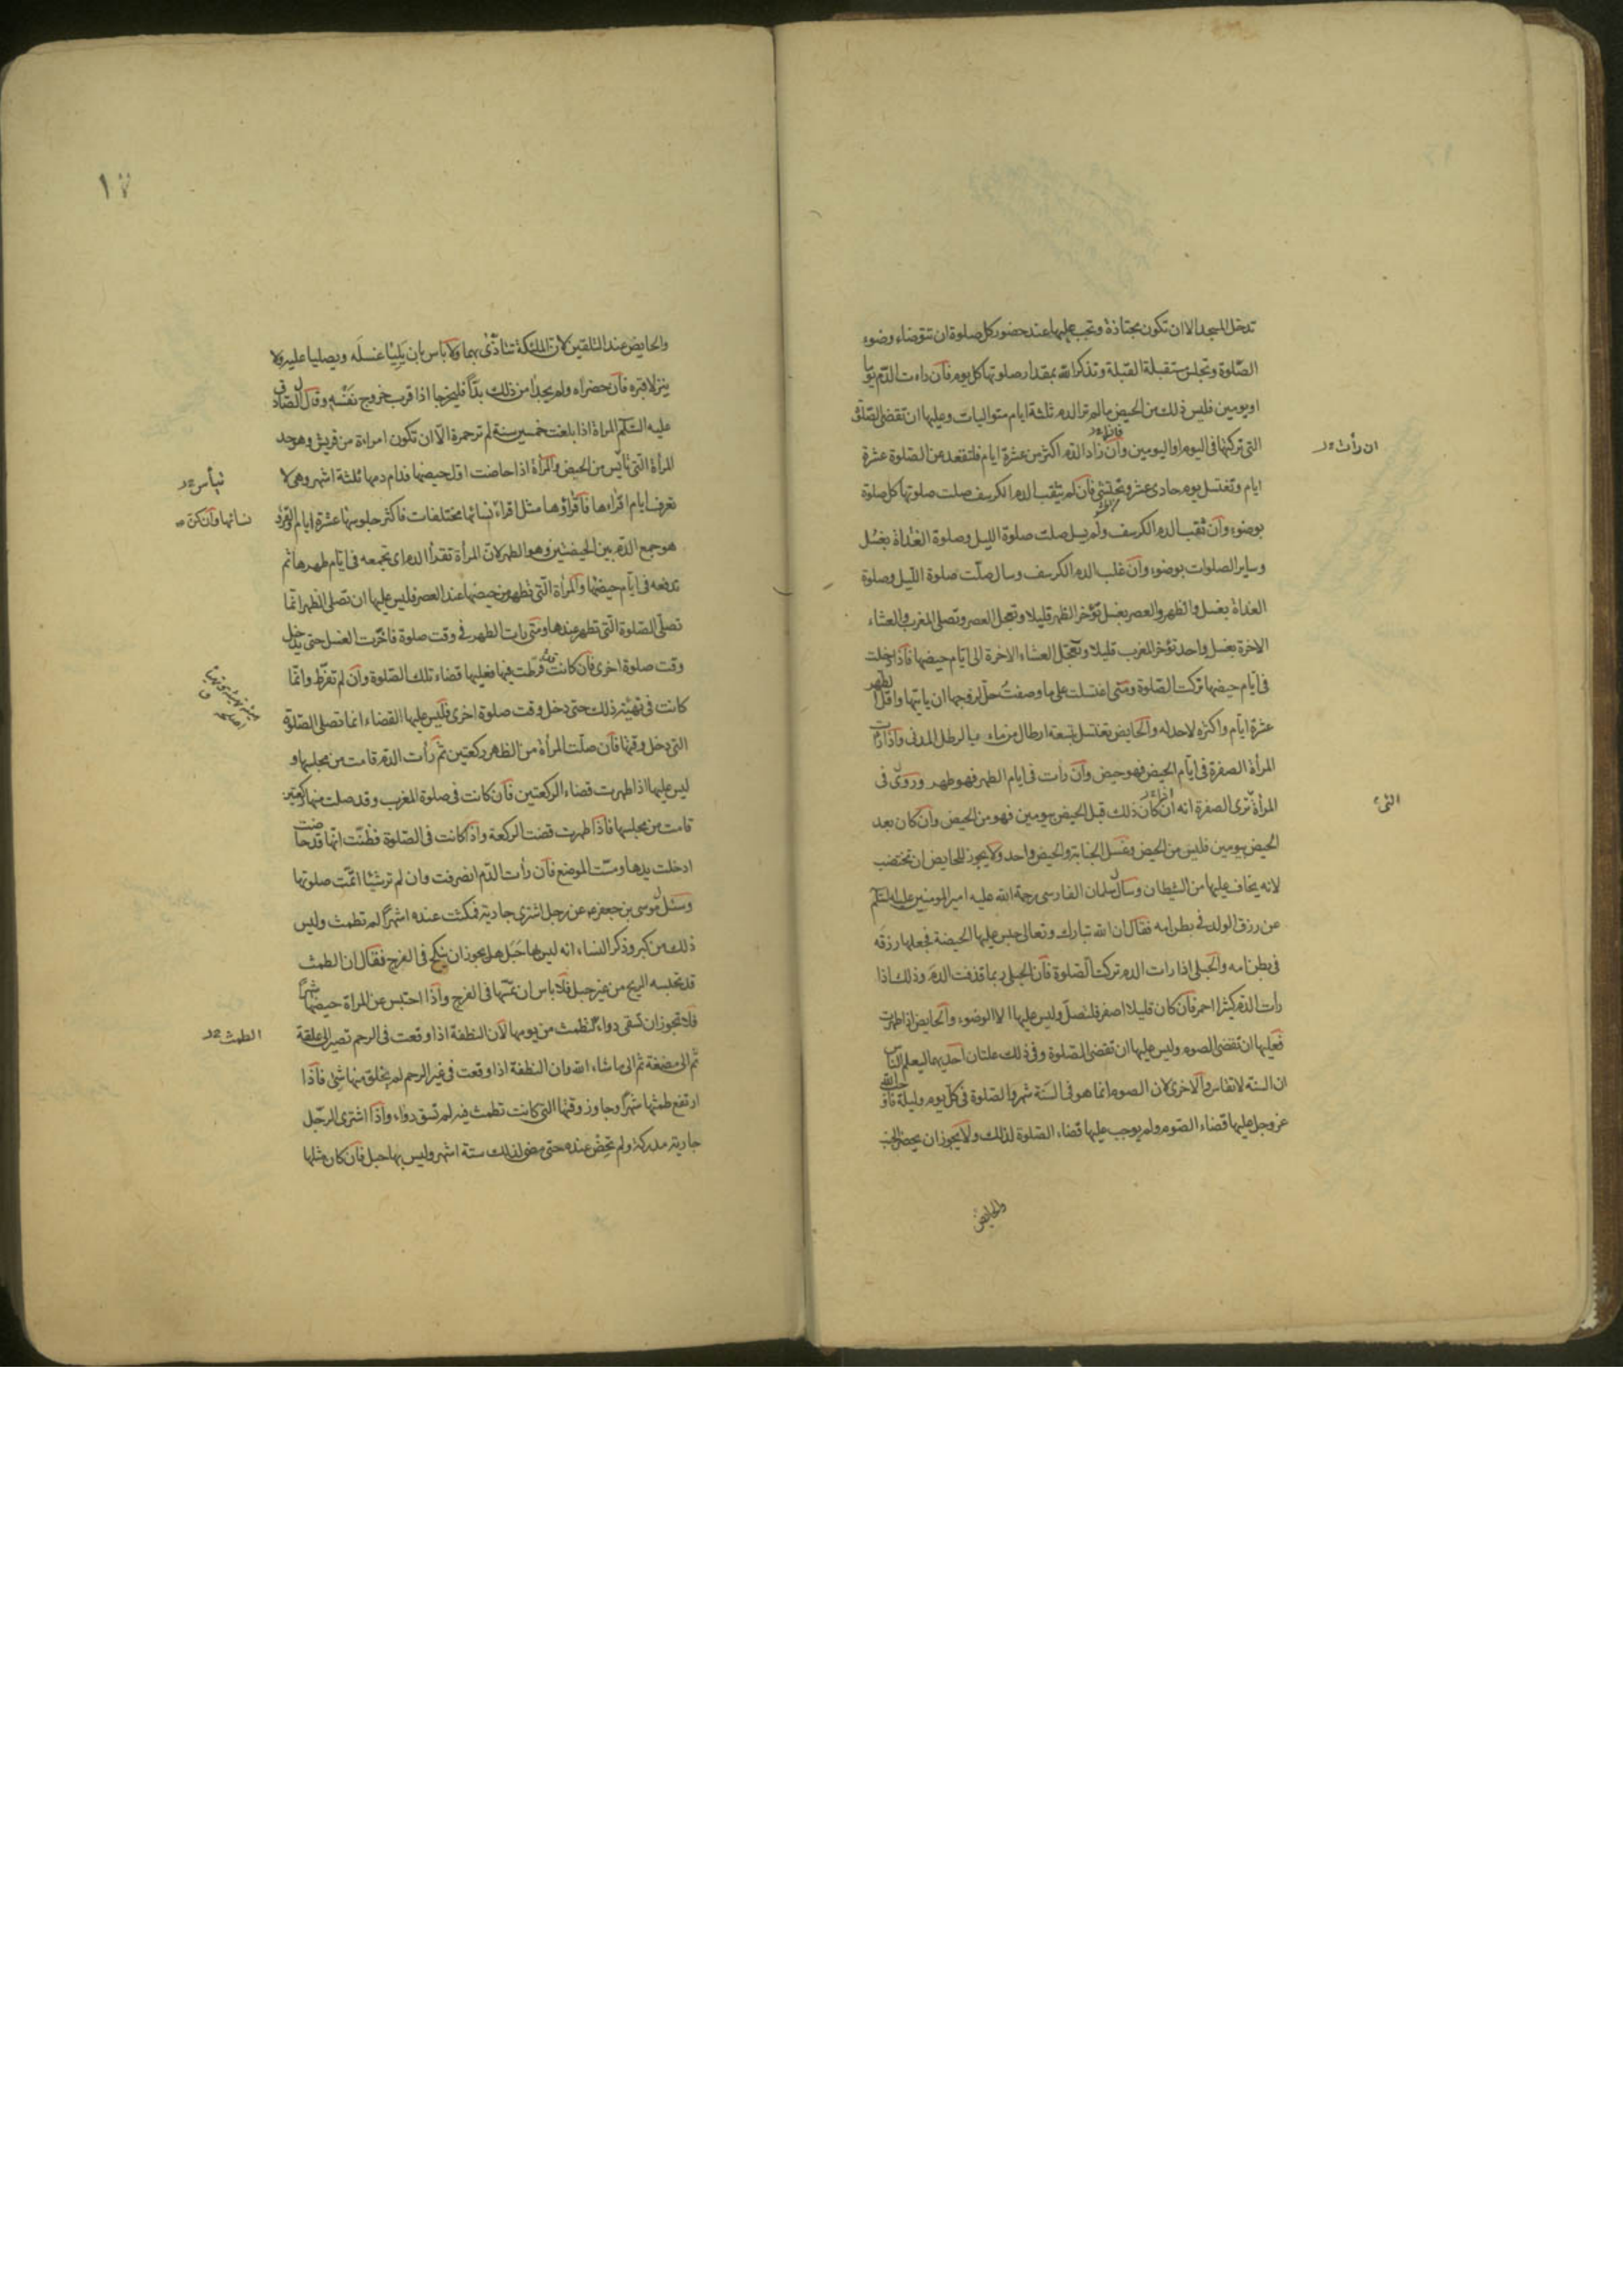 تدخل المسجد الا ان تكون مجتازة وتجب عليها عند حضور كل صلوة ان تتوضاء وضوء
الصّلوة وتجلس مستقبلة القبلة وتذكر الله بمقدار صلوتها كل يوم فان راءت الدّم يوما
او يومين فليس ذلك من الحيض مالم تر الدم ثلثة ايام متواليات وعليها ان تقضى الصّلوة
التى تركتها فى اليوم او اليومين وان زاد الدّم اكثر من عشرة ايام فلتقعد عن الصّلوة عشرة
ان رأت
ايام وتغتسل يوم حادى عشر وتحتشى فان لم يثقب الدم الكرسف صلت صلوتها كل صلوة
بوضوء وان ثقب الدم الكرسف ولم يسل صلت صلوة الليل وصلوة الغداة بغسل
وساير الصلوات بوضوء وان غلب الدم الكرسف وسال صلّت صلوة اللّيل وصلوة
الغداة بغسل والظهر والعصر بغسل تؤخر الظهر قليلا وتعجل العصر وتصلى المغرب والعشاء
الاخرة بغسل واحد تؤخر المغرب قليلا وتعجّل العشاء الاخرة الى ايّام حيضها فاذا دخلت
فى ايّام حيضها تركت الصّلوة ومتى اغتسلت على ما وصفتُ حلّ لزوجها ان ياتيها واقل الطهر
عشرة ايّام واكثره لاحد له والحايض تغتسل بتسعة ارطال من ماء بالرطل المدنى واذا رأت
المرأة الصفرة فى ايّام الحيض فهو حيض وان رأت فى ايام الطهر فهو طهر وروى فى
المرأة ترى الصفرة انه ان كان ذلك قبل الحيض بيومين فهو من الحيض وان كان بعد
الحيض بيومين فليس من الحيض وغسل الجنابة والحيض واحد ولا يجوز للحايض ان تختضب
لانه يخاف عليها من الشيطان وسال سلمان الفارسى رحمة الله عليه امير المومنين عليه السّلم
عن رزق الولد فى بطن امه فقال ان الله تبارك وتعالى حبس عليها الحيضة فجعلها رزقه
فى بطن امه والحبلى اذا رات الدم تركت الصّلوة فان الحبلى ربما قذفت الدم وذلك اذا
رأت الدّم كثيرا احمر فان كان قليلا اصفر فلتصلّ وليس عليها الا الوضوء والحايض اذا طهرت
فعليها ان تقضى الصوم وليس عليها ان تقضى الصّلوة وفى ذلك علتان احديهما ليعلم النّاس
ان السنّة لا تقاس والاخرى لان الصوم انما هو فى السّنة شهر والصّلوة فى كلّ يوم وليلة فاوجب الله
عز وجل عليها قضاء الصّوم ولم يوجب عليها قضاء الصّلوة لذلك ولا يجوز ان يحضر الجنب
والحايض
١٧
والحايض عند التلقين لان الملئكة تتأذّى بهما ولا باس بان يليا غسله ويصليا عليه ولا
ينزلا قبره فان حضراه ولم يجدا من ذلك بدّاً فليخرجا اذا قرب خروج نَفْسه وقال الصّادق
عليه السّلم المراة اذا بلغت خمسين سنة لم تر حمرة الّا ان تكون امراءة من قريش وهو حد
المرأة الّتى تأيس من الحيض والمرأة اذا حاضت اول حيضها فدام دمها ثلثة اشهر وهى لا
تيأس
تعرف ايام اقراءها فاقراؤها مثل اقراء نسائها مختلفات فاكثر جلوسها عشرة ايام والقرء
نسائها وان كن
هو جمع الدّم بين الحيضتين وهو الطهر لان المرأة تقرأ الدم اى تجمعه فى ايّام طهرها ثم
تدفعه فى ايّام حيضها والمرأة الّتى تطهر من حيضها عند العصر فليس عليها ان تصلى الظهر انّما
تصلّى الصّلوة الّتى تطهر عندها ومتى رات الطهر فى وقت صلوة فاخّرت الغسل حتى يدخل
وقت صلوة اخرى فان كانت فرّطت فيها فعليها قضاء تلك الصّلوة وان لم تفرّط وانّما
كانت فى تهيئة ذلك حتى دخل وقت صلوة اخرى فليس عليها القضاء انما تصلى الصّلوة
التى دخل وقتها فان صلّت المرأة من الظهر ركعتين ثم رأت الدّم قامت من مجلسها و
ليس عليها اذا طهرت قضاء الركعتين فان كانت فى صلوة المغرب وقد صلت منها ركعتين
قامت من مجلسها فاذا طهرت قضت الركعة واذا كانت فى الصّلوة فظنّت انّها قد حاضت
ادخلت يدها ومسّت الموضع فان رأت الدّم انصرفت وان لم تر شيئا اتمّت صلوتها
وسئل موسى بن جعفر عن رجل اشترى جارية فمكثت عنده اشهراً لم تطمث وليس
ذلك من كبر وذكر النساء انه ليس بها حَبَل هل يجوز ان ينكح فى الفرج فقال ان الطمث
قد تحبسه الريح من غير حبل فلا باس ان يمسّها فى الفرج واذا احتبس عن المراة حيضها شهراً
فلا تجوز ان تسقى دواء الطمث من يومها لان النطفة اذا وقعت فى الرحم تصير الى علقة
الطمث
ثم الى مضغة ثم الى ما شاء الله وان النطفة اذا وقعت فى غير الرحم لم يخلق منها شئ فاذا
ارتفع طمثها شهراً وجاوز وقتها التى كانت تطمث فيه لم تسق دواء واذا اشترى الرّجل
جارية مدركة ولم تحِضْ عنده حتى مضى لذلك ستة اشهر وليس بها حبل فان كان مثلها